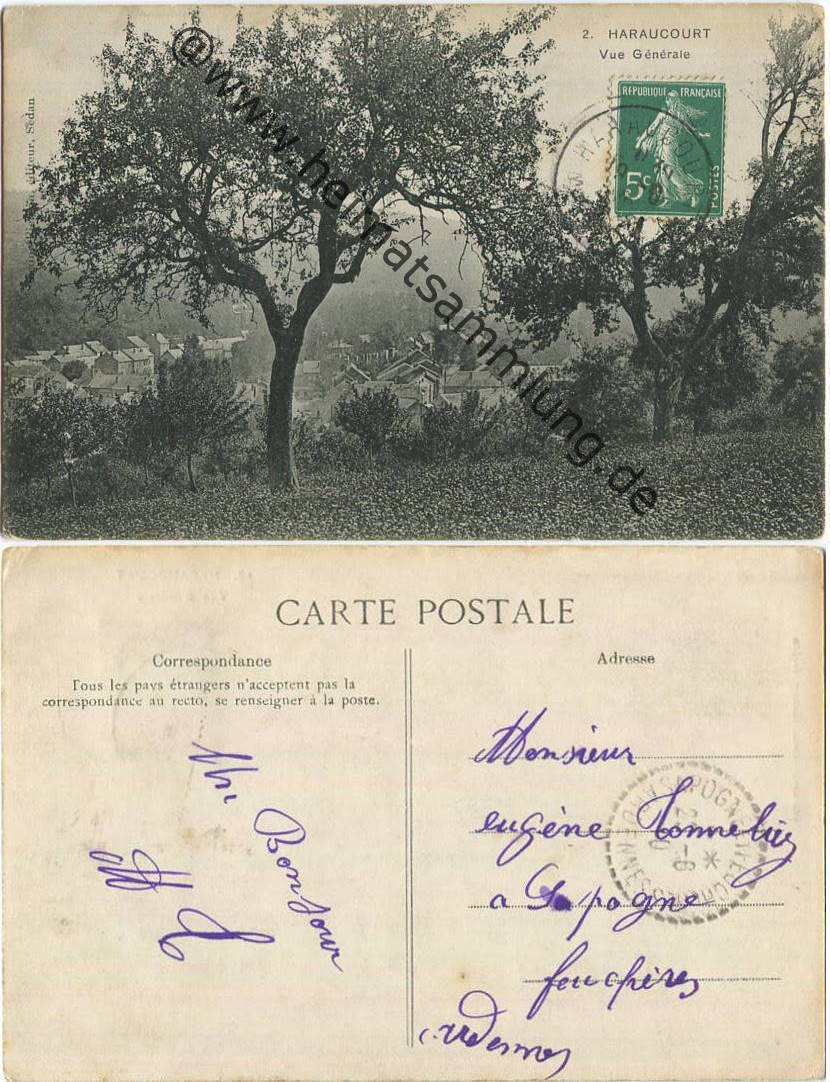 2. HARAUCOURT
Vue Générale
éditeur, Sedan
REPUBLIQUE FRANÇAISE
5c
POSTES
@www.heimatsammlung.de
CARTE POSTALE
Correspondance
Tous les pays étrangers n'acceptent pas la
correspondance au recto, se renseigner à la poste.
Bonjour
Adresse
Monsieur
eugène
a pogne
feuchères
ardennes